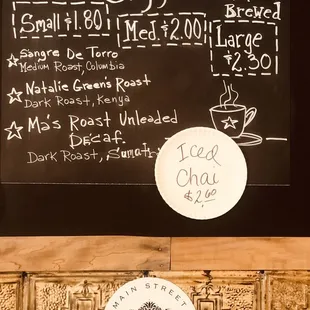 Brewed
Small $1.80
Med. $2.00
Large
$2.30
Sangre De Torro
Medium Roast, Columbia
Natalie Green's Roast
Dark Roast, Kenya
Ma's Roast Unleaded
Decaf.
Dark Roast,
Iced
Chai
$2.60
MAIN STREET